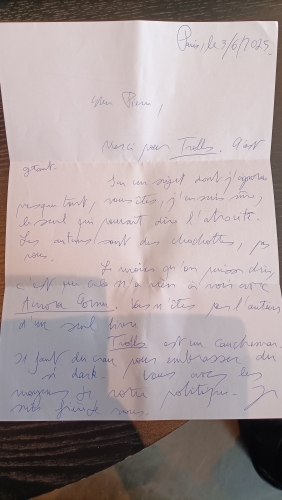 Paris, le 3/6/2025
Cher Pierre,
Merci pour Trolls. C'est
géant.
Sur un sujet dont j'ignorais
presque tout, vous êtes, j'en suis sûre,
le seul qui pouvait dire l'atroce.
Les autres sont des chochottes, pas
vous.
Le moins qu'on puisse dire,
c'est que ça n'a rien à voir avec
Vous n'êtes pas l'auteur
d'un seul livre.
Trolls est un cauchemar.
Il faut du cran pour embrasser du
si dark. Vous avez les
moyens de votre politique.
vous.